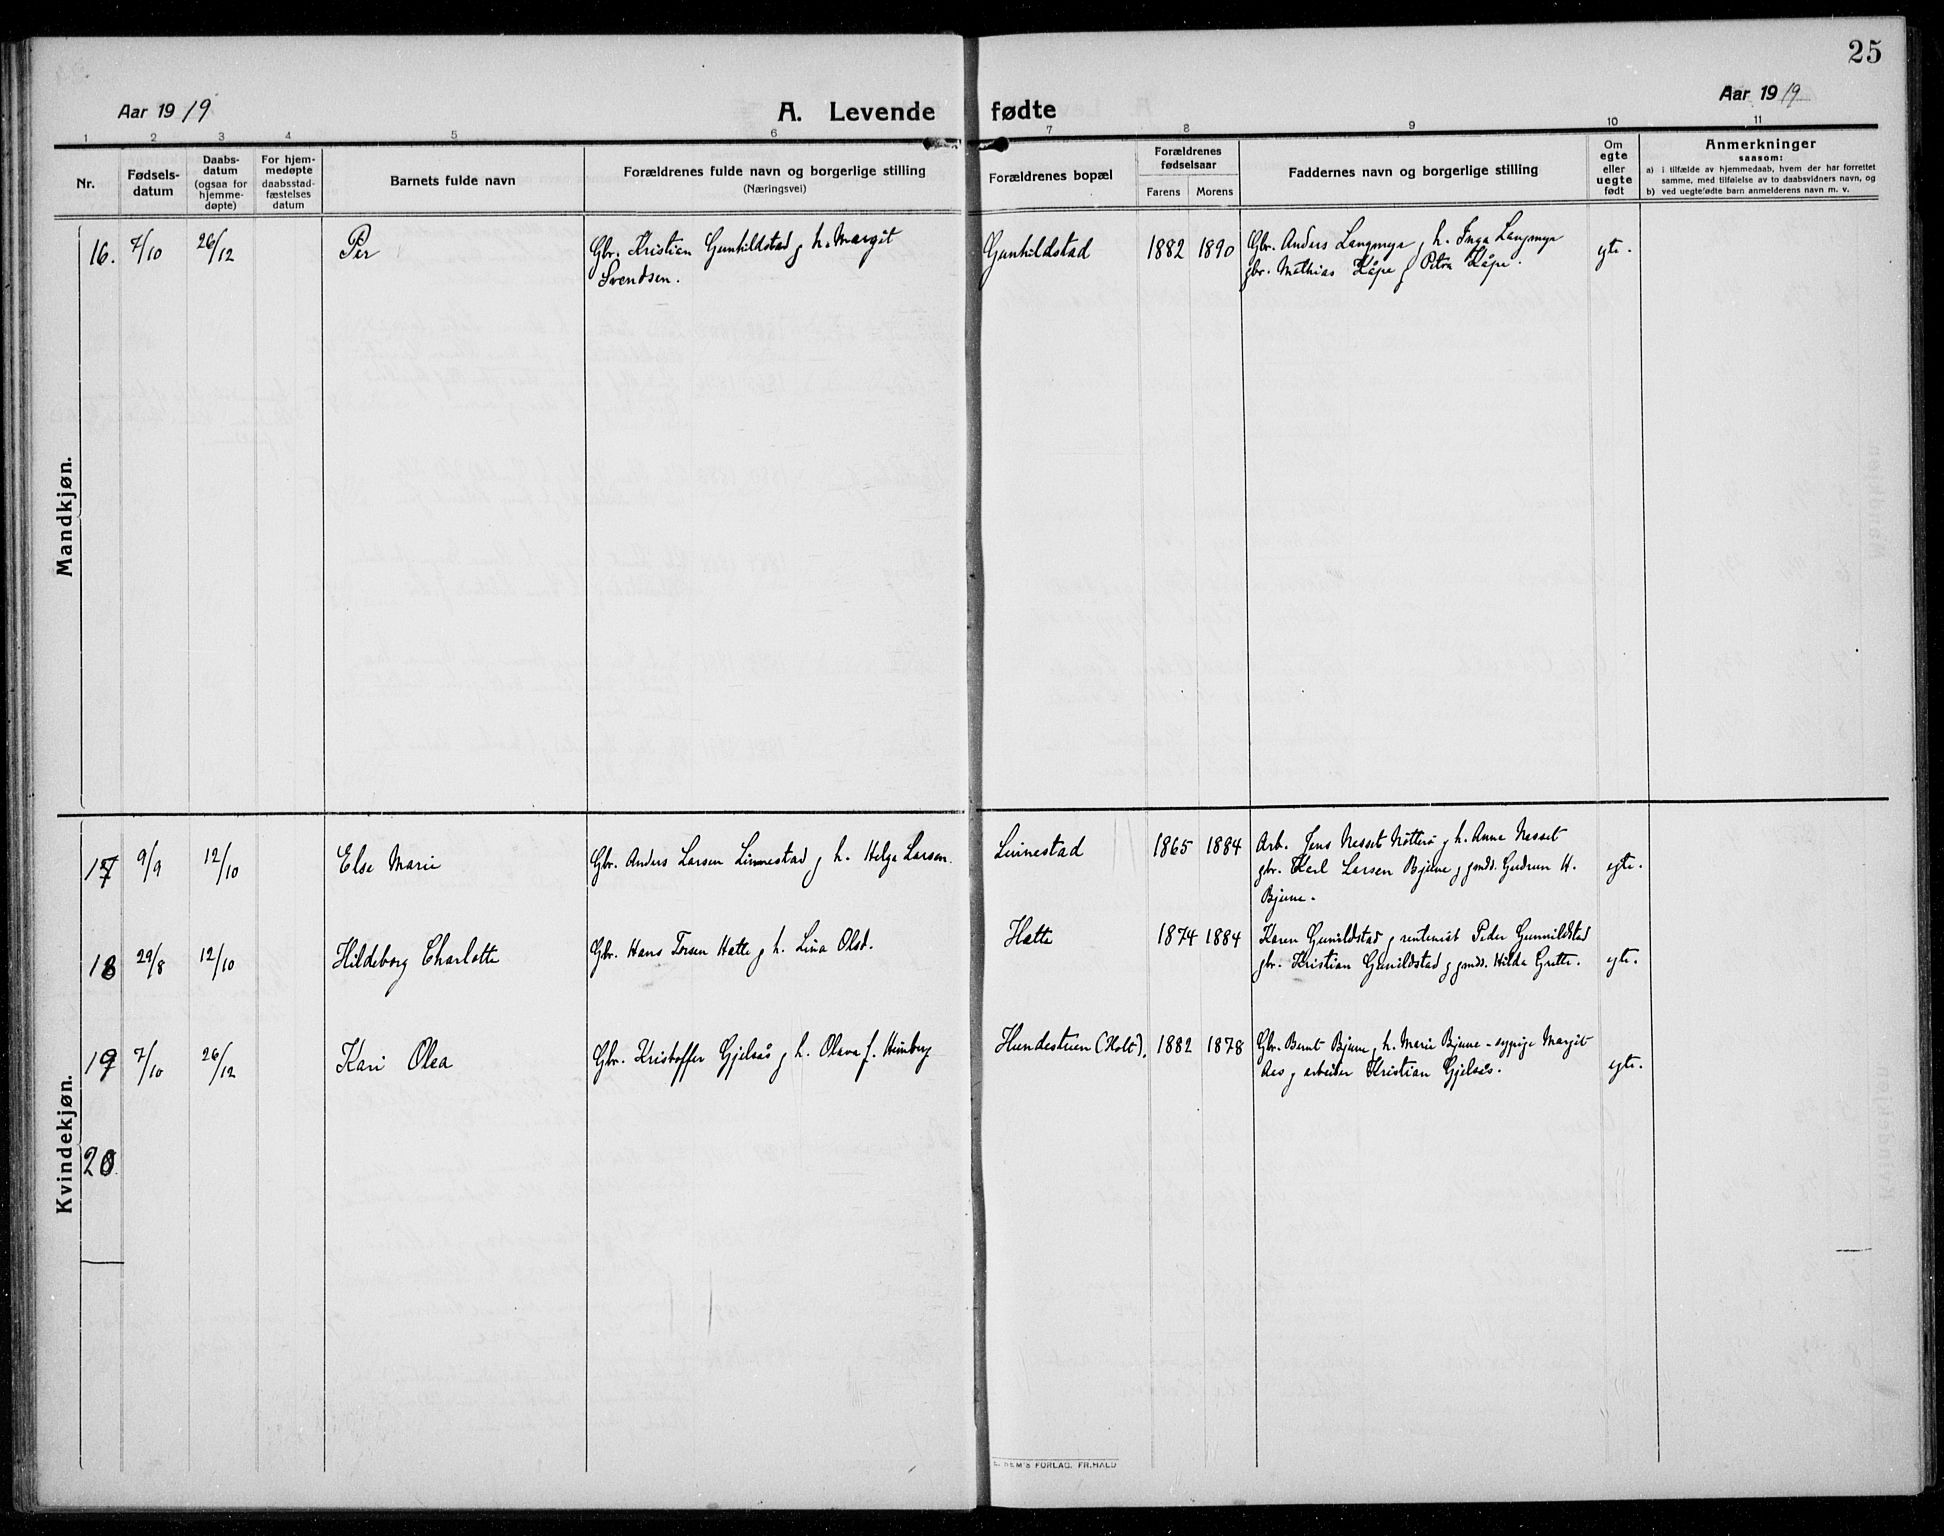 25
Aar 1919
A. Levende fødte
Aar 1919
1 2 3 4 5 6 7 8 9 10 11
Nr.
Fødsels-
datum
Daabs-
datum
(ogsaa for
hjemme-
døpte)
For hjem-
medøpte
daabsstad-
fæstelses
datum
Barnets fulde navn
Forældrenes fulde navn og borgerlige stilling
(Næringsvei)
Forældrenes bopæl
Forældrenes
fødselsaar
Farens Morens
Faddernes navn og borgerlige stilling
Om
egte
eller
uegte
født
Anmerkninger
saasom:
a) i tilfælde av hjemmedaab, hvem der har forrettet
samme, med tilføielse av to daabsvidners navn, og
b) ved uegtefødte barn anmelderens navn m. v.
Mandkjøn.
16. 7/10 26/12 Per Gbr. Kristian Gunhildstad og h. Margit Gunhildstad 1882 1890 Gbr. Anders Langmyr og h. Inga Langmyr egte.
Svendsen. gbr. Mathias Kåpe og Petra Kåpe.
Kvindekjøn.
17 9/9 12/10 Else Marie Gbr. Anders Larsen Linnestad og h. Helga Larsen. Linnestad 1865 1884 Arb. Jens Nesset Nøtterø og h. Anna Nesset egte.
gbr. Karl Larsen Bjune og gmds. Gudrun H.
Bjune.
18 29/8 12/10 Hildeborg Charlotte Gbr. Hans Torsen Hatte og h. Lina Olsd. Hatte 1874 1884 Karen Gunildstad og rentenist Peder Gunnildstad egte.
gbr. Kristian Gunildstad og gmds. Hilda Grette.
19 7/10 26/12 Kari Olea Gbr. Kristoffer Gjelsås og h. Olava f. Heimberg Hundestuen (Holt). 1882 1878 Gbr. Bernt Bjune og h. Marie Bjune – sypige Margit egte.
Aas og arbeider Kristian Gjelsås.
20
FORLAG. FR. HALD